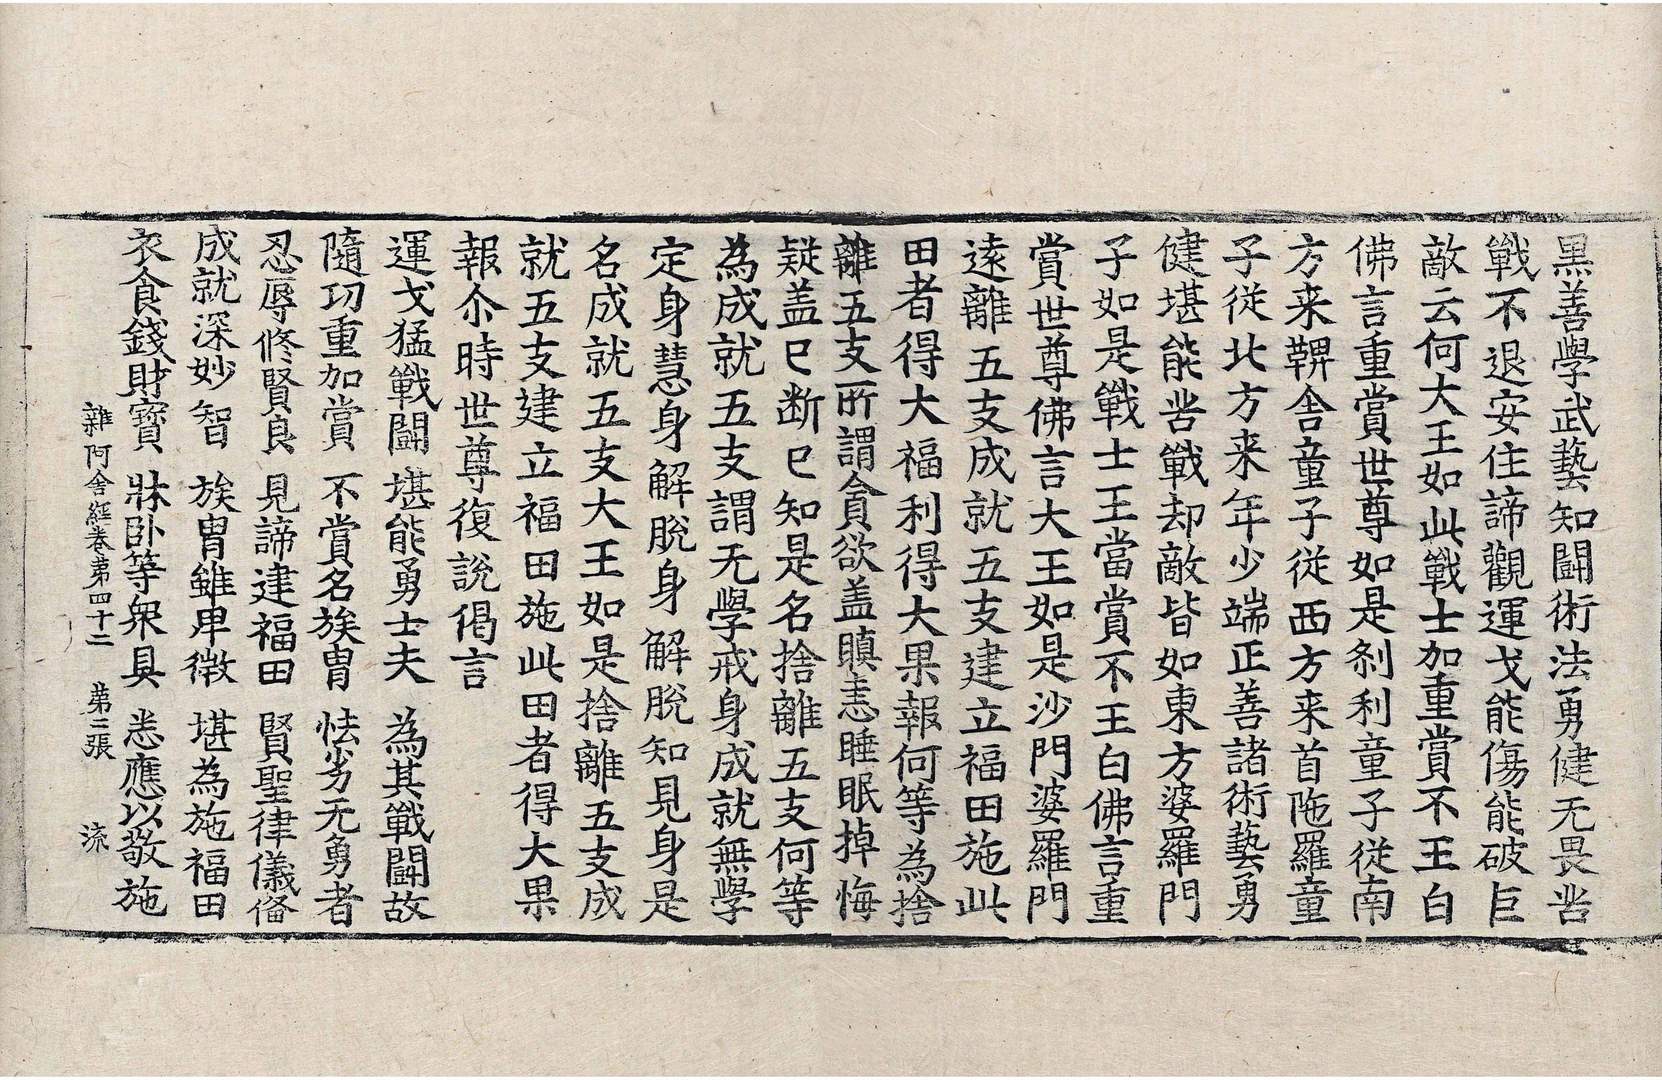 黒善學武藝知闘術法勇健无畏㘽
戰不退安住諦觀運戈能傷能破巨
敵云何大王如此戰士加重賞不王白
佛言重賞世尊如是刹利童子從南
方来鞞舎童子從西方来首陁羅童
子從北方来年少端正善諸術藝勇
健堪能㘽戰却敵皆如東方婆羅門
子如是戰士王當賞不王白佛言重
賞世尊佛言大王如是沙門婆羅門
遠離五支成就五支建立福田施此
田者得大福利得大果報何等為捨
離五支所謂貪欲盖瞋恚睡眠掉悔
疑盖已断已知是名捨離五支何等
為成就五支謂无學戒身成就無學
定身慧身解脫身解脫知見身是
名成就五支大王如是捨離五支成
就五支建立福田施此田者得大果
報尒時世尊復說偈言
運戈猛戰闘　堪能勇士夫　為其戰闘故
隨功重加賞　不賞名族胄　怯劣无勇者
忍辱修賢良　見諦建福田　賢聖律儀俻
成就深妙智　族胄雖卑微　堪為施福田
衣食錢財寶　牀卧等衆具　悉應以敬施
雜阿含經卷第四十二　第二張　流